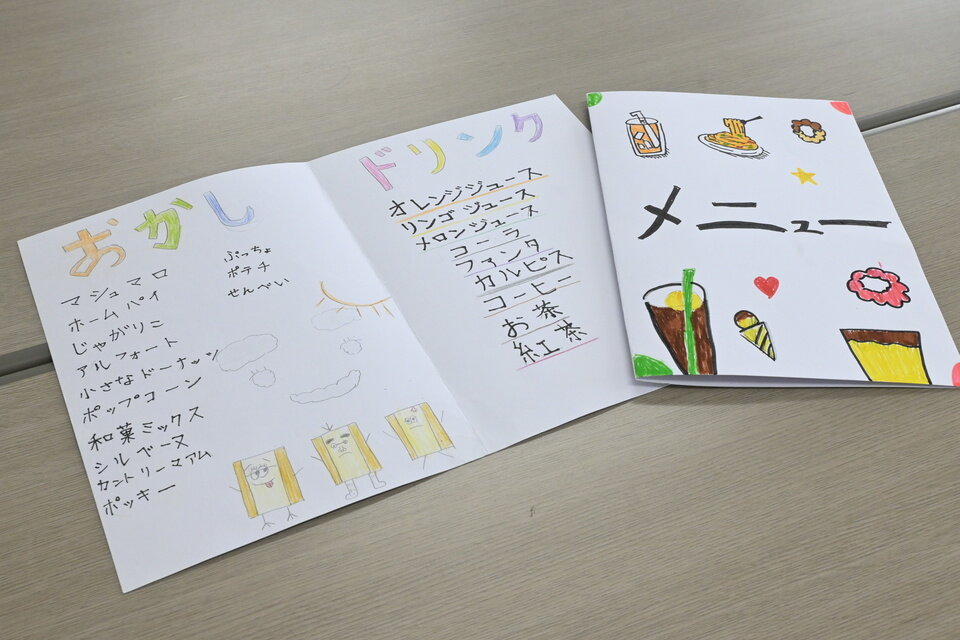 おかし
マシュマロ
ホームパイ
じゃがりこ
アルフォート
小さなドーナッツ
ポップコーン
和菓ミックス
シルベーヌ
カントリーマアム
ポッキー
ぷっちょ
ポテチ
せんべい
ドリンク
オレンジジュース
リンゴジュース
メロンジュース
コーラ
ファンタ
カルピス
コーヒー
お茶
紅茶
メニュー